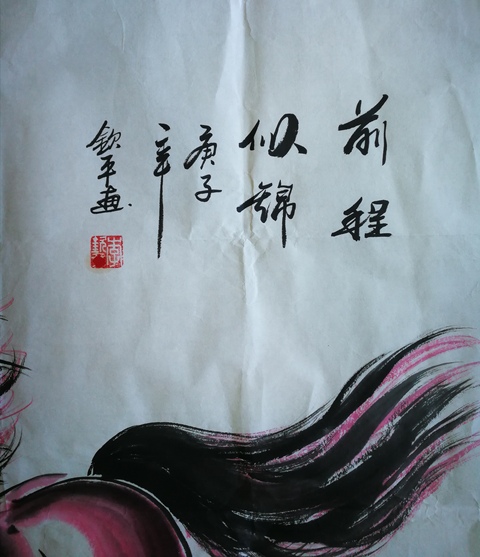 前程
似锦
庚子
年
钦平画